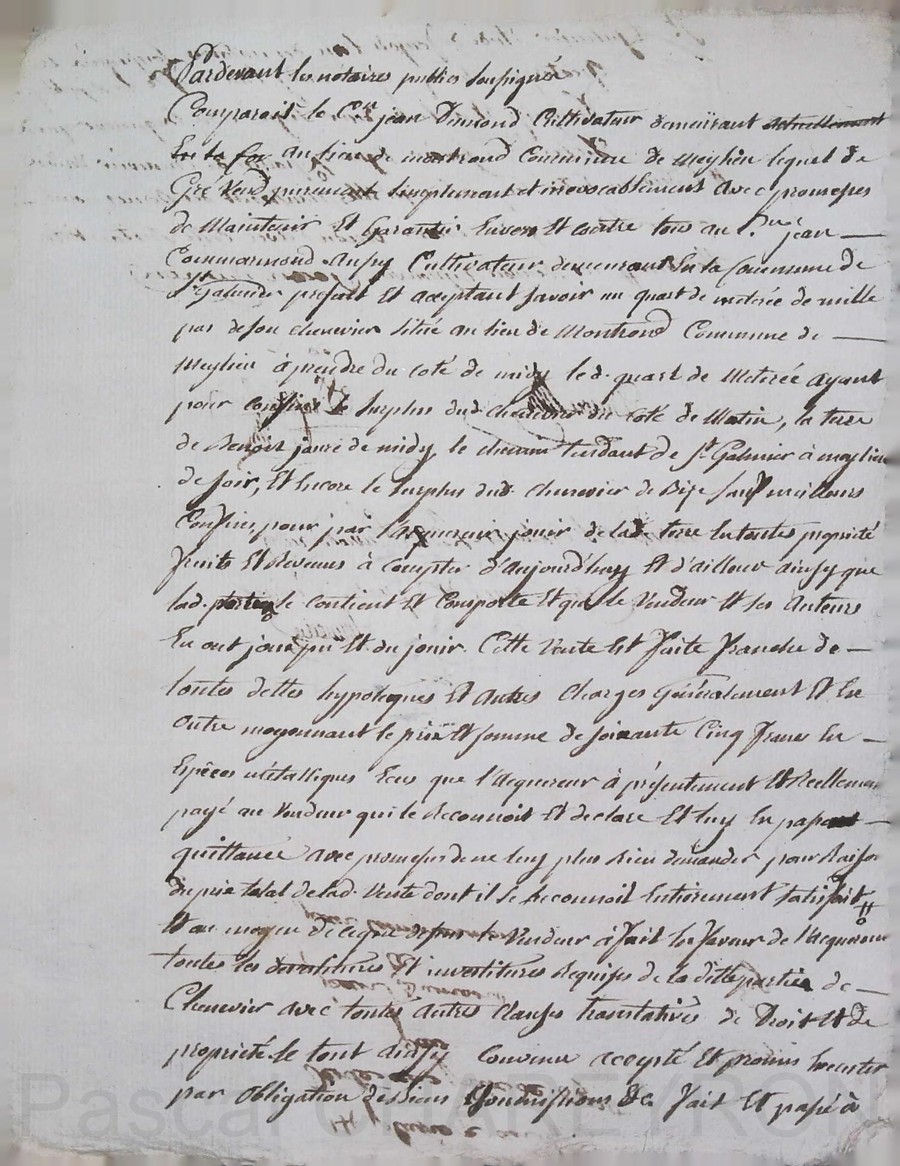 Pardevant les notaires publics soussignés
Comparait le C.en jean Dumond Cultivateur demeurant actuellement
En la for au lieu de montrond Commune de Meylieu lequel de
Gré vend purement simplement et irrevocablement avec promesses
de Maintenir Et Garantir Envers Et contre tous au C.en jean
Commarmond Aussy Cultivateur demeurant En la Commune de
St Galmier présent Et acceptant savoir un quart de meterée de mille
pas de son chenevier situé au lieu de Montrond Commune de
Meylieu à prendre du coté de midy led. quart de Meterée ayant
pour confins le surplus dud. chenevier du coté de Matin, la terre
de Benoit de midy, le chemin tendant de St Galmier à meylieu
de soir, Et Encore le surplus dud. chenevier de Bize sauf meilleurs
Confins, pour par l'Acquereur jouir de lad. terre En toutes propriété
fruits Et Revenus à compter d'aujourd'huy Et d'ailleur ainsy que
lad. partie le Contient Et Comporte Et que le Vendeur Et ses Auteurs
En ont joui pu Et du jouir. Cette Vente Est faite franche de
toutes dettes hypoteques Et autres Charges Généralement Et En
outre moyennant le prix Et somme de soixante Cinq francs En
Espèces métalliques Ecus que l'Acquereur à présentement Et Reellement
payé au Vendeur qui le Reconnoit Et declare Et luy En passant
quittance avec promesse de ne luy plus Rien demander pour Raison
du prix total de lad. Vente dont il se Reconnoit Entierement satisfait
Et au moyen de ce que dessus le Vendeur à fait En faveur de l'Acquereur
toutes les devestitures Et investitures Requises de la ditte partie de
Chenevier avec toutes autres Clauses translatives de Droit Et de
propriété le tout ainsy convenu accepté Et promis Executer
par obligation de biens soumissions &c. fait Et passé à
Pascal CHAREYRON